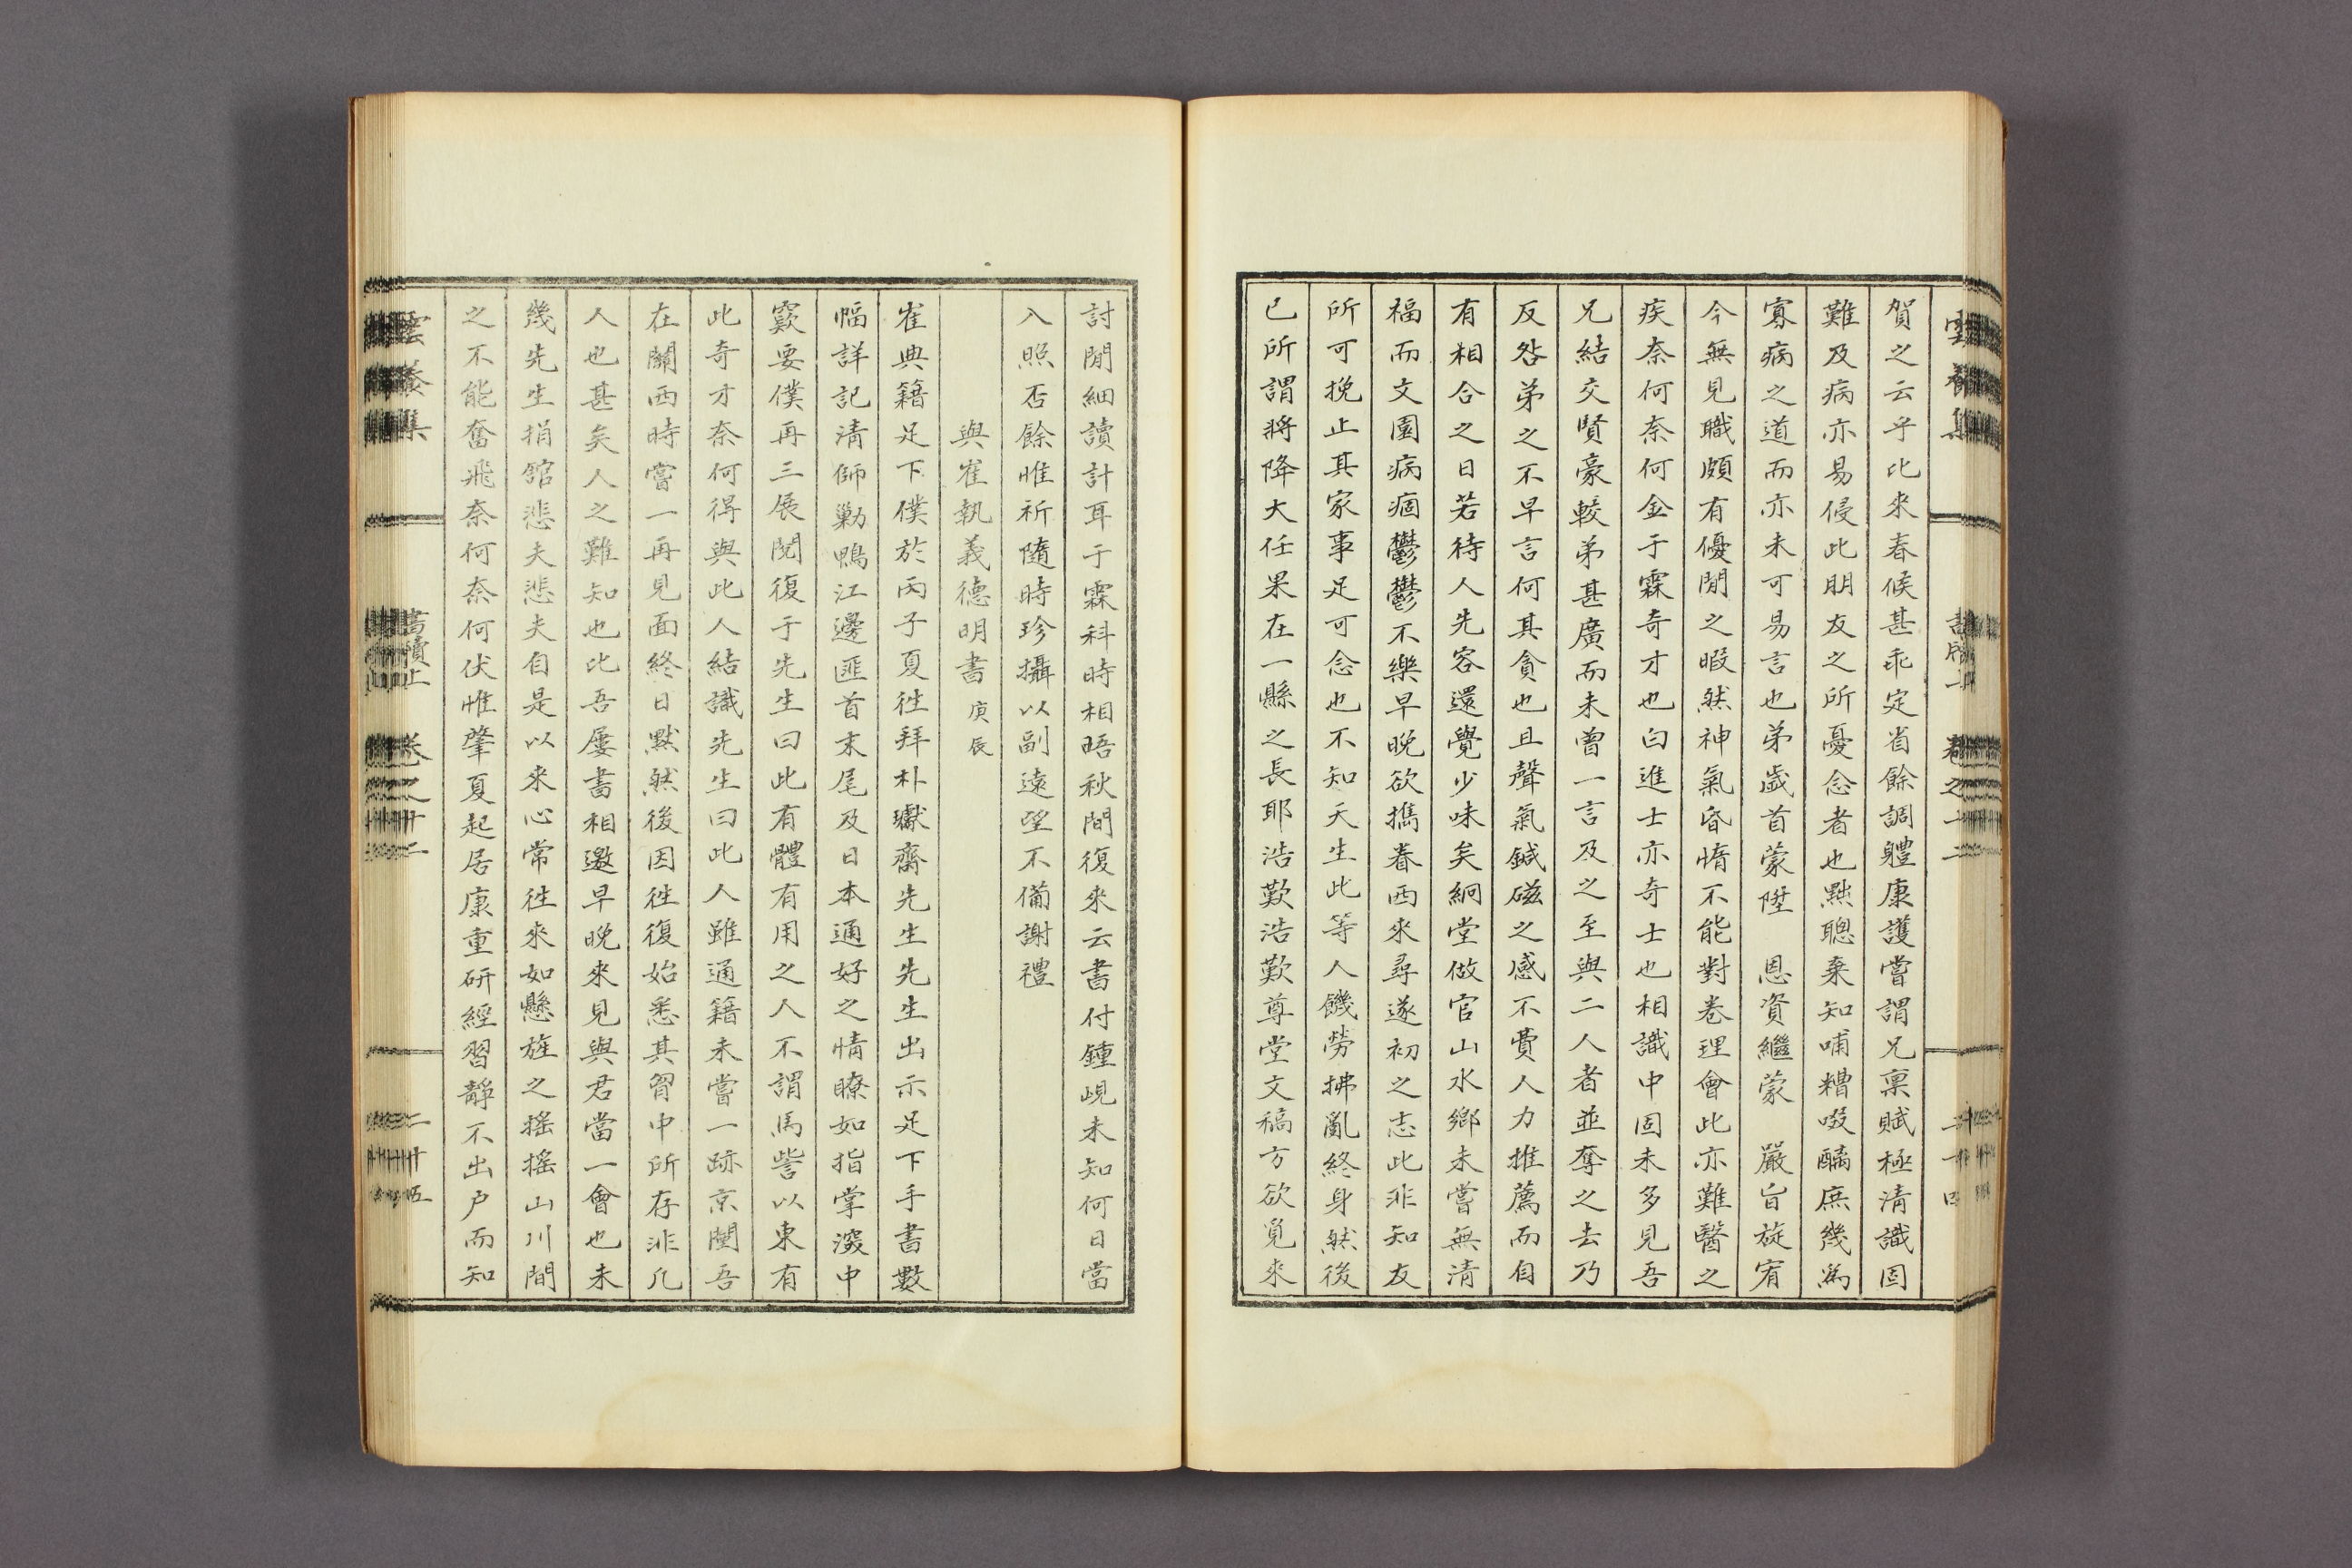 賀之云乎比來春候甚乖定省餘調軆康護嘗謂兄稟賦極淸識固
難及病亦易侵此朋友之所憂念者也黜聰棄知哺糟啜醨庶幾爲
寡病之道而亦未可易言也弟歲首蒙陞 恩資繼蒙 嚴旨旋宥
今無見職頗有優閒之暇然神氣昏惰不能對卷理會此亦難醫之
疾奈何奈何金于霖奇才也白進士亦奇士也相識中固未多見吾
兄結交賢豪較弟甚廣而未曾一言及之至與二人者並奪之去乃
反咎弟之不早言何其貪也且聲氣鍼磁之感不費人力推薦而自
有相合之日若待人先容還覺少味矣絅堂做官山水鄕未嘗無淸
福而文園病痼鬱鬱不樂早晩欲携眷西來尋遂初之志此非知友
所可挽止其家事足可念也不知天生此等人饑勞拂亂終身然後
已所謂將降大任果在一縣之長耶浩歎浩歎尊堂文稿方欲覓來
討閒細讀計耳于霖科時相晤秋間復來云書付鍾峴未知何日當
入照否餘惟祈隨時珍攝以副遠望不備謝禮
與崔執義德明書 庚辰
崔典籍足下僕於丙子夏徃拜朴瓛齋先生先生出示足下手書數
幅詳記淸師勦鴨江邊匪首末尾及日本通好之情瞭如指掌深中
窾要僕再三展閱復于先生曰此有體有用之人不謂馬訾以東有
此奇才奈何得與此人結識先生曰此人雖通籍未嘗一跡京闉吾
在關西時嘗一再見面終日默然後因徃復始悉其胷中所存非凡
人也甚矣人之難知也比吾屢書相邀早晩來見與君當一會也未
幾先生捐舘悲夫悲夫自是以來心常徃來如懸旌之搖搖山川間
之不能奮飛奈何奈何伏惟肇夏起居康重研經習靜不出户而知
雲養集 書牘上 卷之十二 二十五